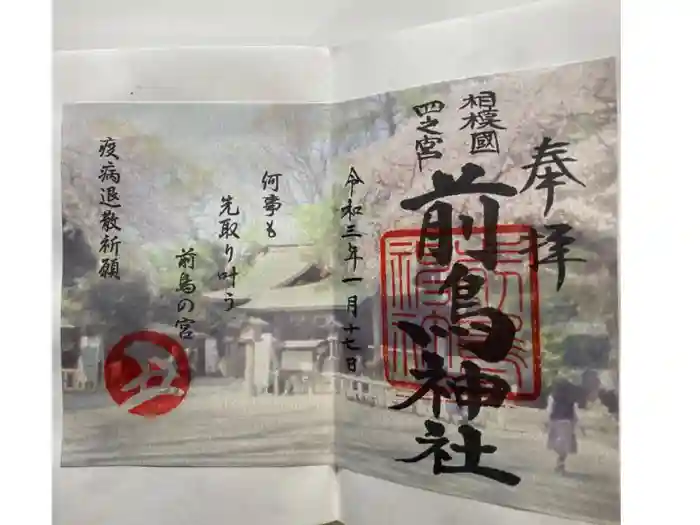 奉拝
相模國
四之宮
前鳥神社
令和三年一月十七日
何事も
先取り叶う
前鳥の宮
疫病退散祈願
丑